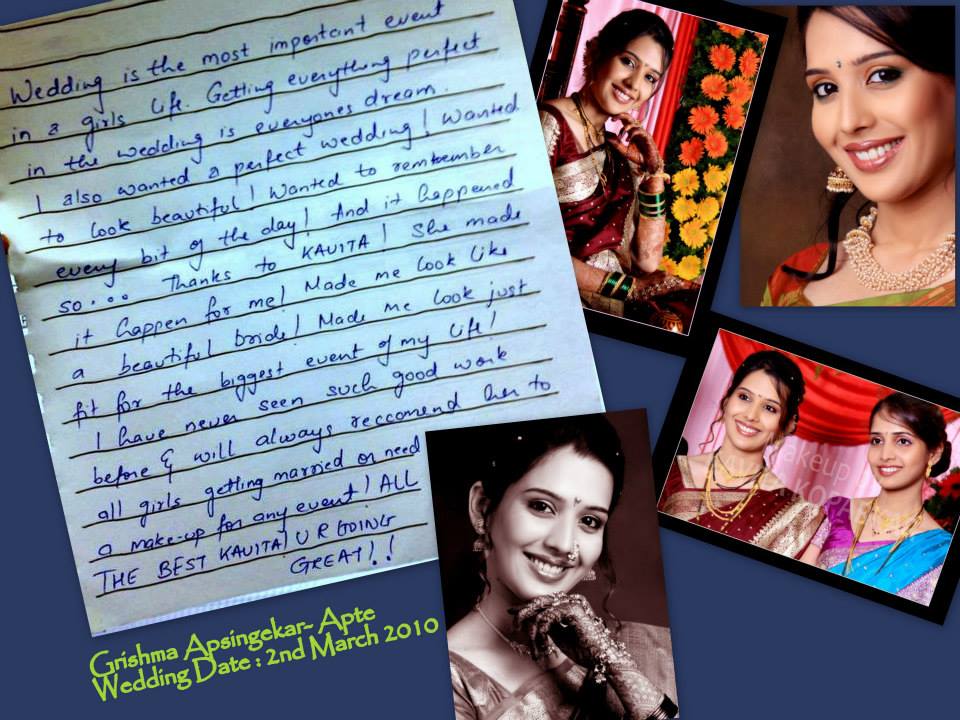 Wedding is the most important event
in a girls life. Getting everything perfect
in the wedding is everyones dream.
I also wanted a perfect wedding! Wanted
to look beautiful! Wanted to remtember
every bit of the day! And it happened
so.... Thanks to KAVITA! She made
it happen for me! Made me look like
a beautiful bride! Made me look just
fit for the biggest event of my life!
I have never seen such good work
before & will always reccomend her to
all girls getting married or need
a make-up for any event! ALL
THE BEST KAVITA! U R GOING
GREAT!!
Grishma Apsingekar- Apte
Wedding Date : 2nd March 2010